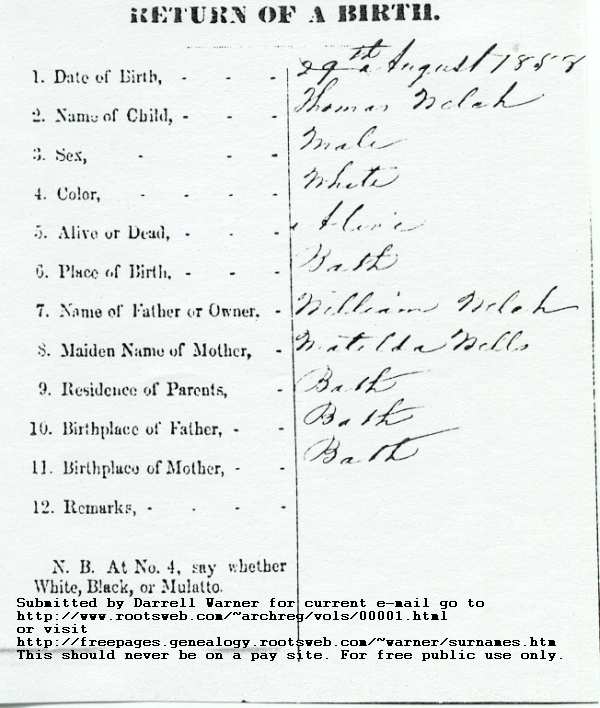 RETURN OF A BIRTH.
1. Date of Birth, - - - 29th August 1858
2. Name of Child, - - - Thomas Welch
3. Sex, - - - Male
4. Color, - - - - White
5. Alive or Dead, - - - Alive
6. Place of Birth, - - - Bath
7. Name of Father or Owner, - William Welch
8. Maiden Name of Mother, - Matilda Wells
9. Residence of Parents, - Bath
10. Birthplace of Father, - - Bath
11. Birthplace of Mother, - - Bath
12. Remarks, - - - -
N. B. At No. 4, say whether
White, Black, or Mulatto.
Submitted by Darrell Warner for current e-mail go to
http://www.rootsweb.com/~archreg/vols/00001.html
or visit
http://freepages.genealogy.rootsweb.com/~warner/surnames.htm
This should never be on a pay site. For free public use only.